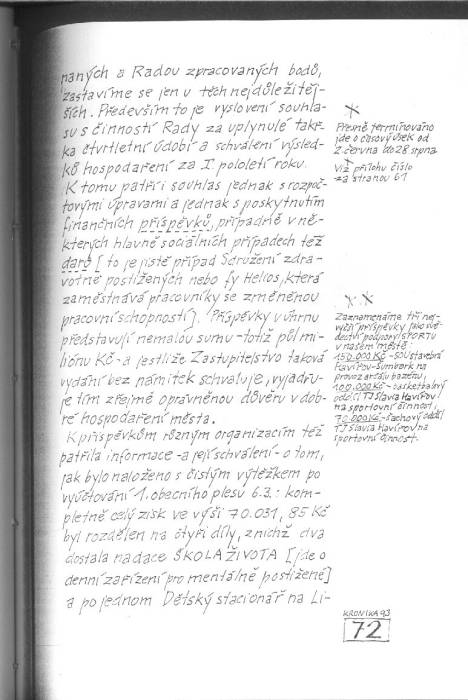 naných a Radou zpracovaných bodů,
zastavíme se jen u těch nejdůležitěj-
ších. Především to je vyslovení souhla-
su s činností Rady za uplynulé takř-
ka čtvrtletní údobí a schválení výsled-
ků hospodaření za I. pololetí roku.
K tomu patří i souhlas jednak s rozpoč-
tovými úpravami a jednak s poskytnutím
finančních příspěvků, případně v ně-
kterých hlavně sociálních případech též
darů [to je jistě případ Sdružení zdra-
votně postižených nebo fy Helios, která
zaměstnává pracovníky se změněnou
pracovní schopností]. Příspěvky v úhrnu
představují nemalou sumu - totiž půl mi-
liónu Kč - a jestliže Zastupitelstvo taková
vydání bez námitek schvaluje, vyjadřu-
je tím zřejmě oprávněnou důvěru v dob-
ré hospodaření města.
K příspěvkům různým organizacím též
patřila informace - a její schválení - o tom,
jak bylo naloženo s čistým výtěžkem po
vyúčtování 1. obecního plesu 6.3.: kom-
pletně celý zisk ve výši 70.031,85 Kč
byl rozdělen na čtyři díly, z nichž dva
dostala nadace ŠKOLA ŽIVOTA [jde o
denní zařízení pro mentálně postižené]
a po jednom Dětský stacionář na Li-
X
Přesně termínováno
jde o časový úsek od
2. června do 28. srpna
Viz přílohu číslo
za stranou 61
X X
Zaznamenáme tři nej-
vyšší příspěvky jako svě-
dectví podpory SPORTU
v našem městě:
150.000 Kč - SOU stavební
Havířov-Šumbark na
provoz areálu bazénu,
100.000 Kč - basketbalový
oddíl TJ Slavia Havířov
na sportovní činnost,
70.000 Kč - šachový oddíl
TJ Slavia Havířov na
sportovní činnost.
KRONIKA 93
72